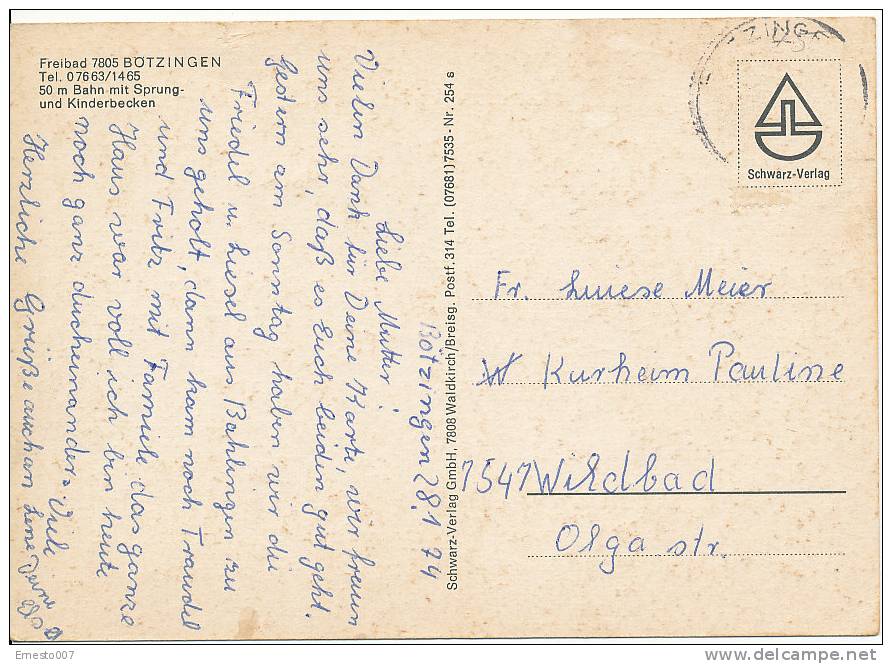 Freibad 7805 BÖTZINGEN
Tel. 07663/1465
50 m Bahn mit Sprung-
und Kinderbecken
Bötzingen 28.1 74
Liebe Mutter!
Vielen Dank für Deine Karte, wir freuen
uns sehr, daß es Euch beiden gut geht.
Gestern am Sonntag haben wir die
Friedel u. Liesel aus Bahlingen zu
uns geholt, dann kam noch Traudel
und Fritz mit Familie das ganze
Haus war voll ich bin heute
noch ganz ducheinander. Viele
Herzliche Grüße auch an Lene Deine
Schwarz-Verlag GmbH, 7808 Waldkirch/Breisg. Postf. 314 Tel. (07681) 7535 - Nr. 254 s
ZINGE
Schwarz-Verlag
Fr. Luiese Meier
Kurheim Pauline
7547 Wildbad
Olga str.
Ernesto007
delcampe.net